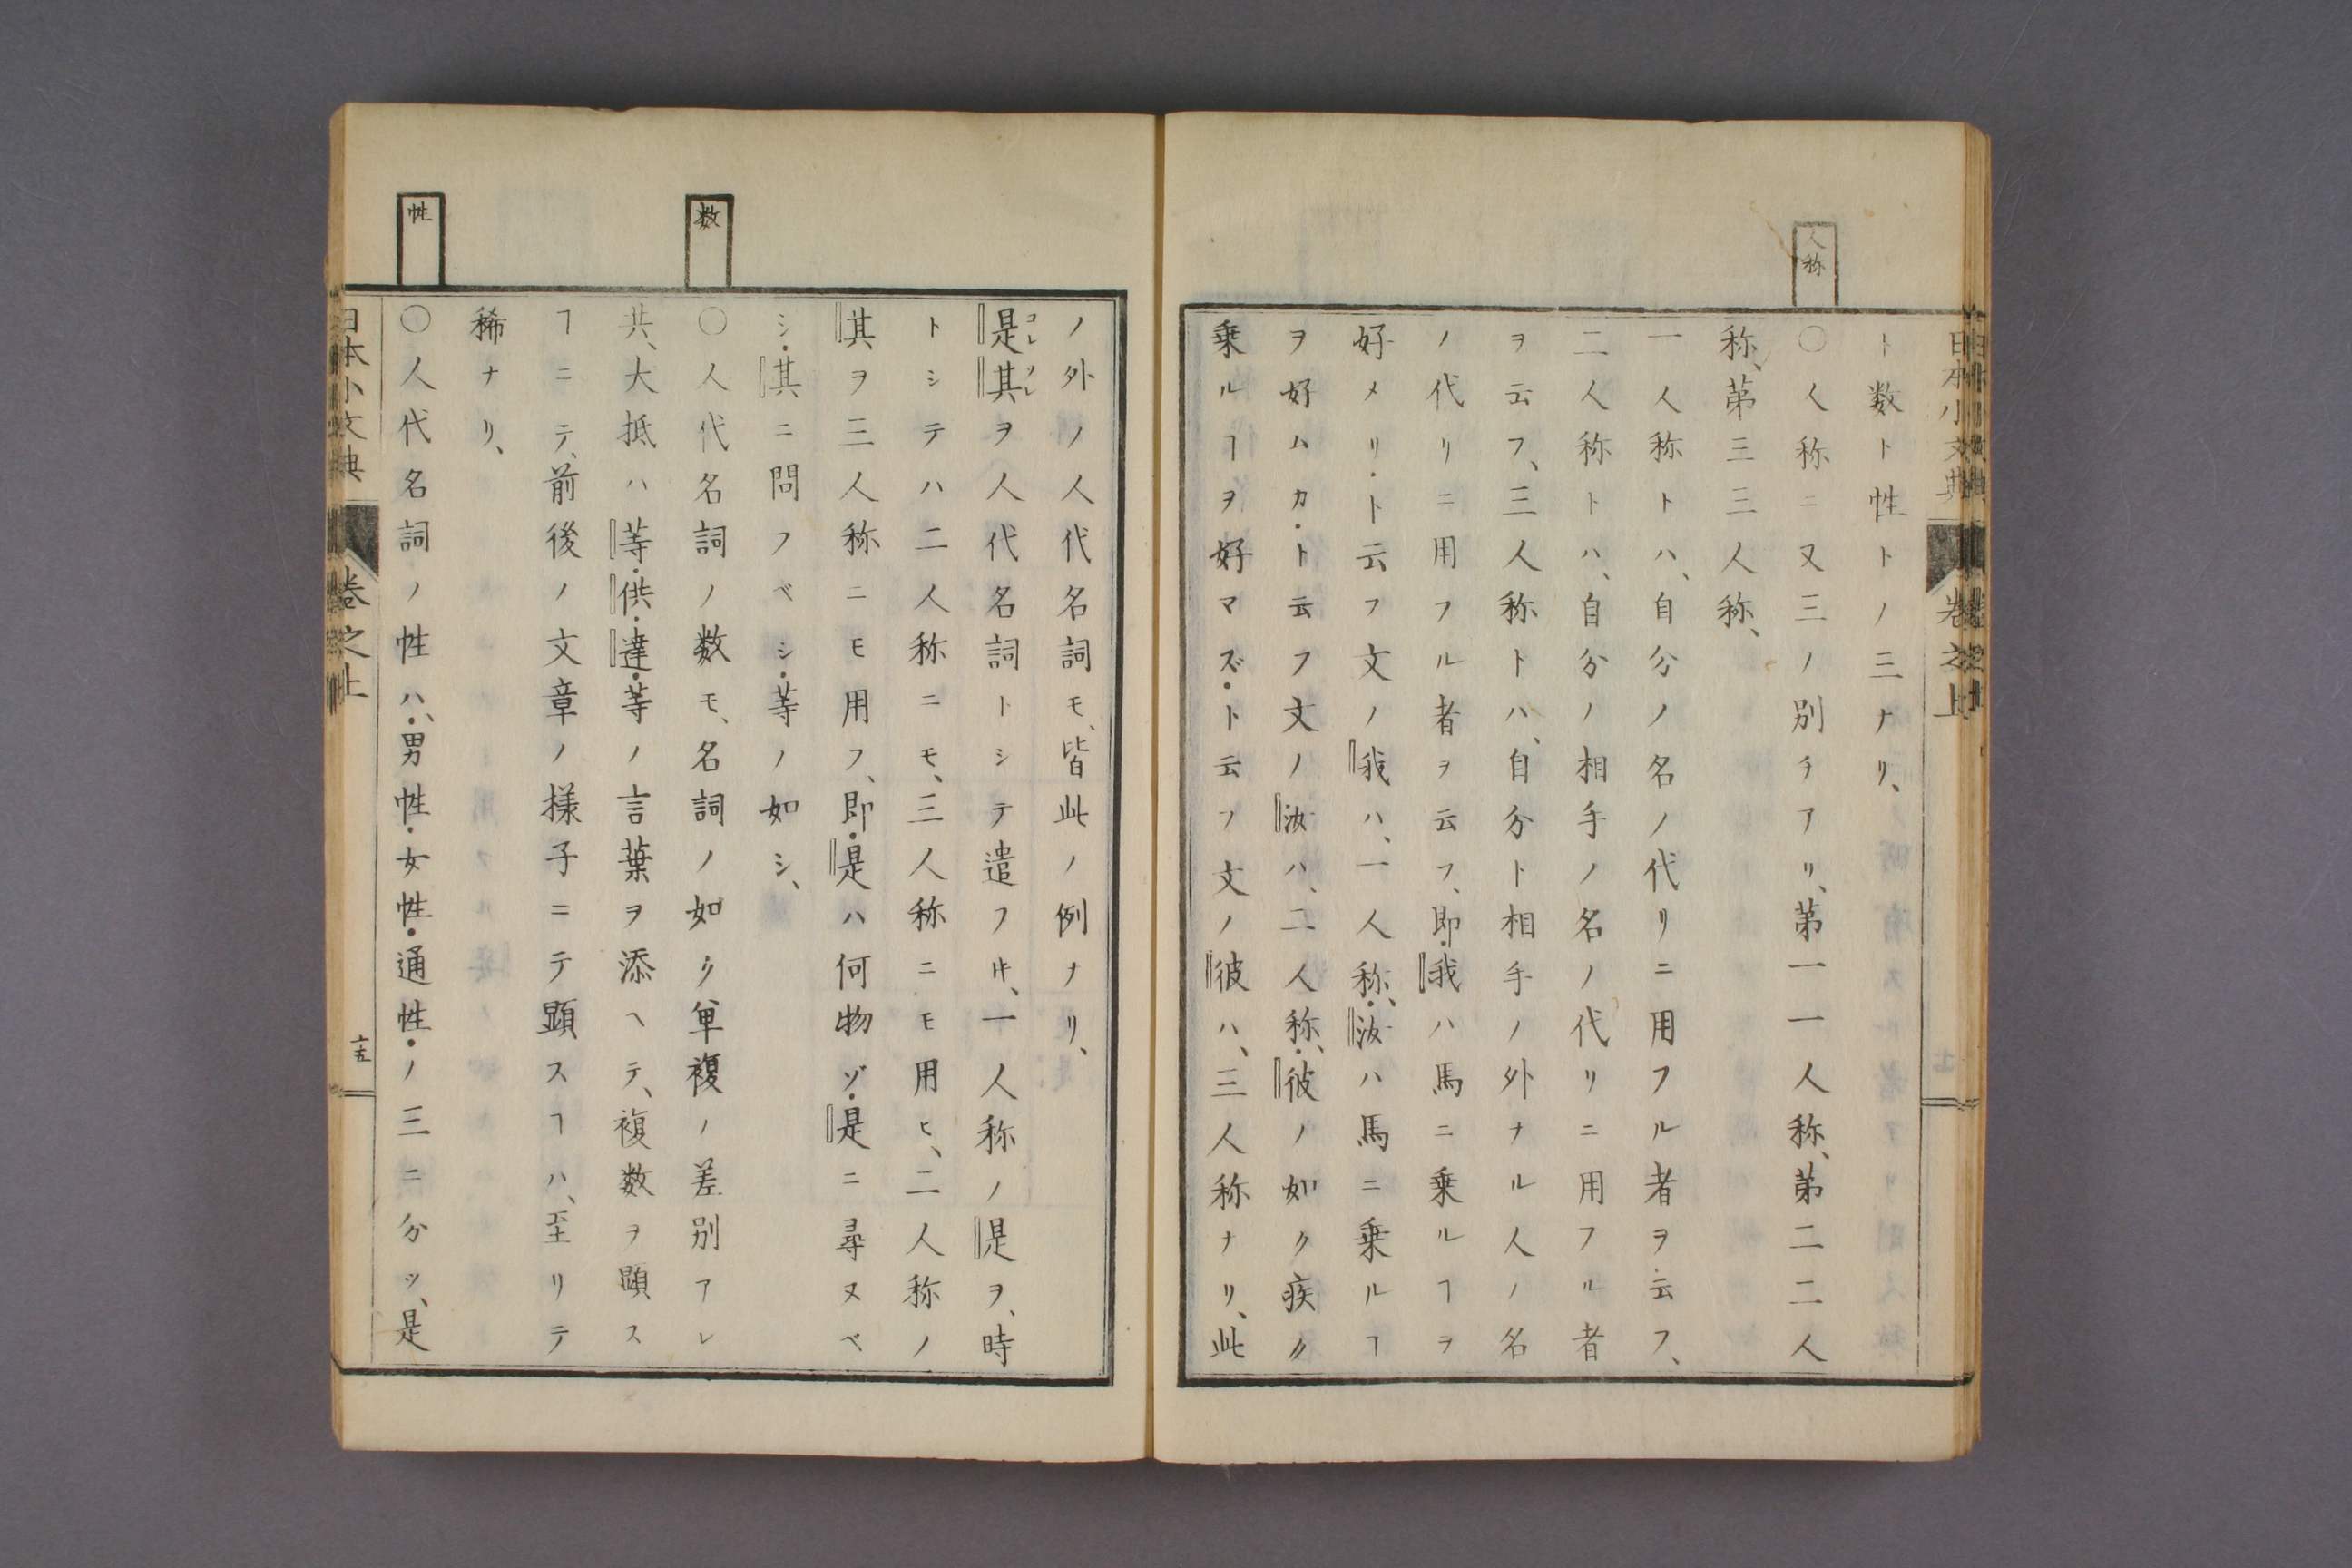 人称
日本小文典
巻之上
ト数ト性トノ三ナリ、
〇人称ニ又三ノ別チアリ、第一一人称、第二二人
称、第三三人称、
一人称トハ、自分ノ名ノ代リニ用フル者ヲ云フ、
二人称トハ、自分ノ相手ノ名ノ代リニ用フル者
ヲ云フ、三人称トハ、自分ト相手ノ外ナル人ノ名
ノ代リニ用フル者ヲ云フ、即・我ハ馬ニ乗ルヿヲ
好メリ・ト云フ文ノ我ハ、一人称、・汝ハ馬ニ乗ルヿ
ヲ好ムカ・ト云フ文ノ汝ハ、二人称、・彼ノ如ク疾ク
乗ルヿヲ好マズ・ト云フ文ノ彼ハ、三人称ナリ、此
数
性
ノ外ノ人代名詞モ、皆此ノ例ナリ、
是コレ其ソレヲ人代名詞トシテ遣フㇳキ、一人称ノ是ヲ、時
トシテハ二人称ニモ、三人称ニモ用ヒ、二人称ノ
其ヲ三人称ニモ用フ、即・是ハ何物ゾ・是ニ尋ヌベ
シ・其ニ問フベシ・等ノ如シ、
〇人代名詞ノ数モ、名詞ノ如ク単複ノ差別アレ
共、大抵ハ等・供・達・等ノ言葉ヲ添ヘテ、複数ヲ顕ス
ヿニテ、前後ノ文章ノ様子ニテ顕スヿハ、至リテ
稀ナリ、
〇人代名詞ノ性ハ、・男性・女性・通性・ノ三ニ分ツ、是
日本小文典
巻之上
十五